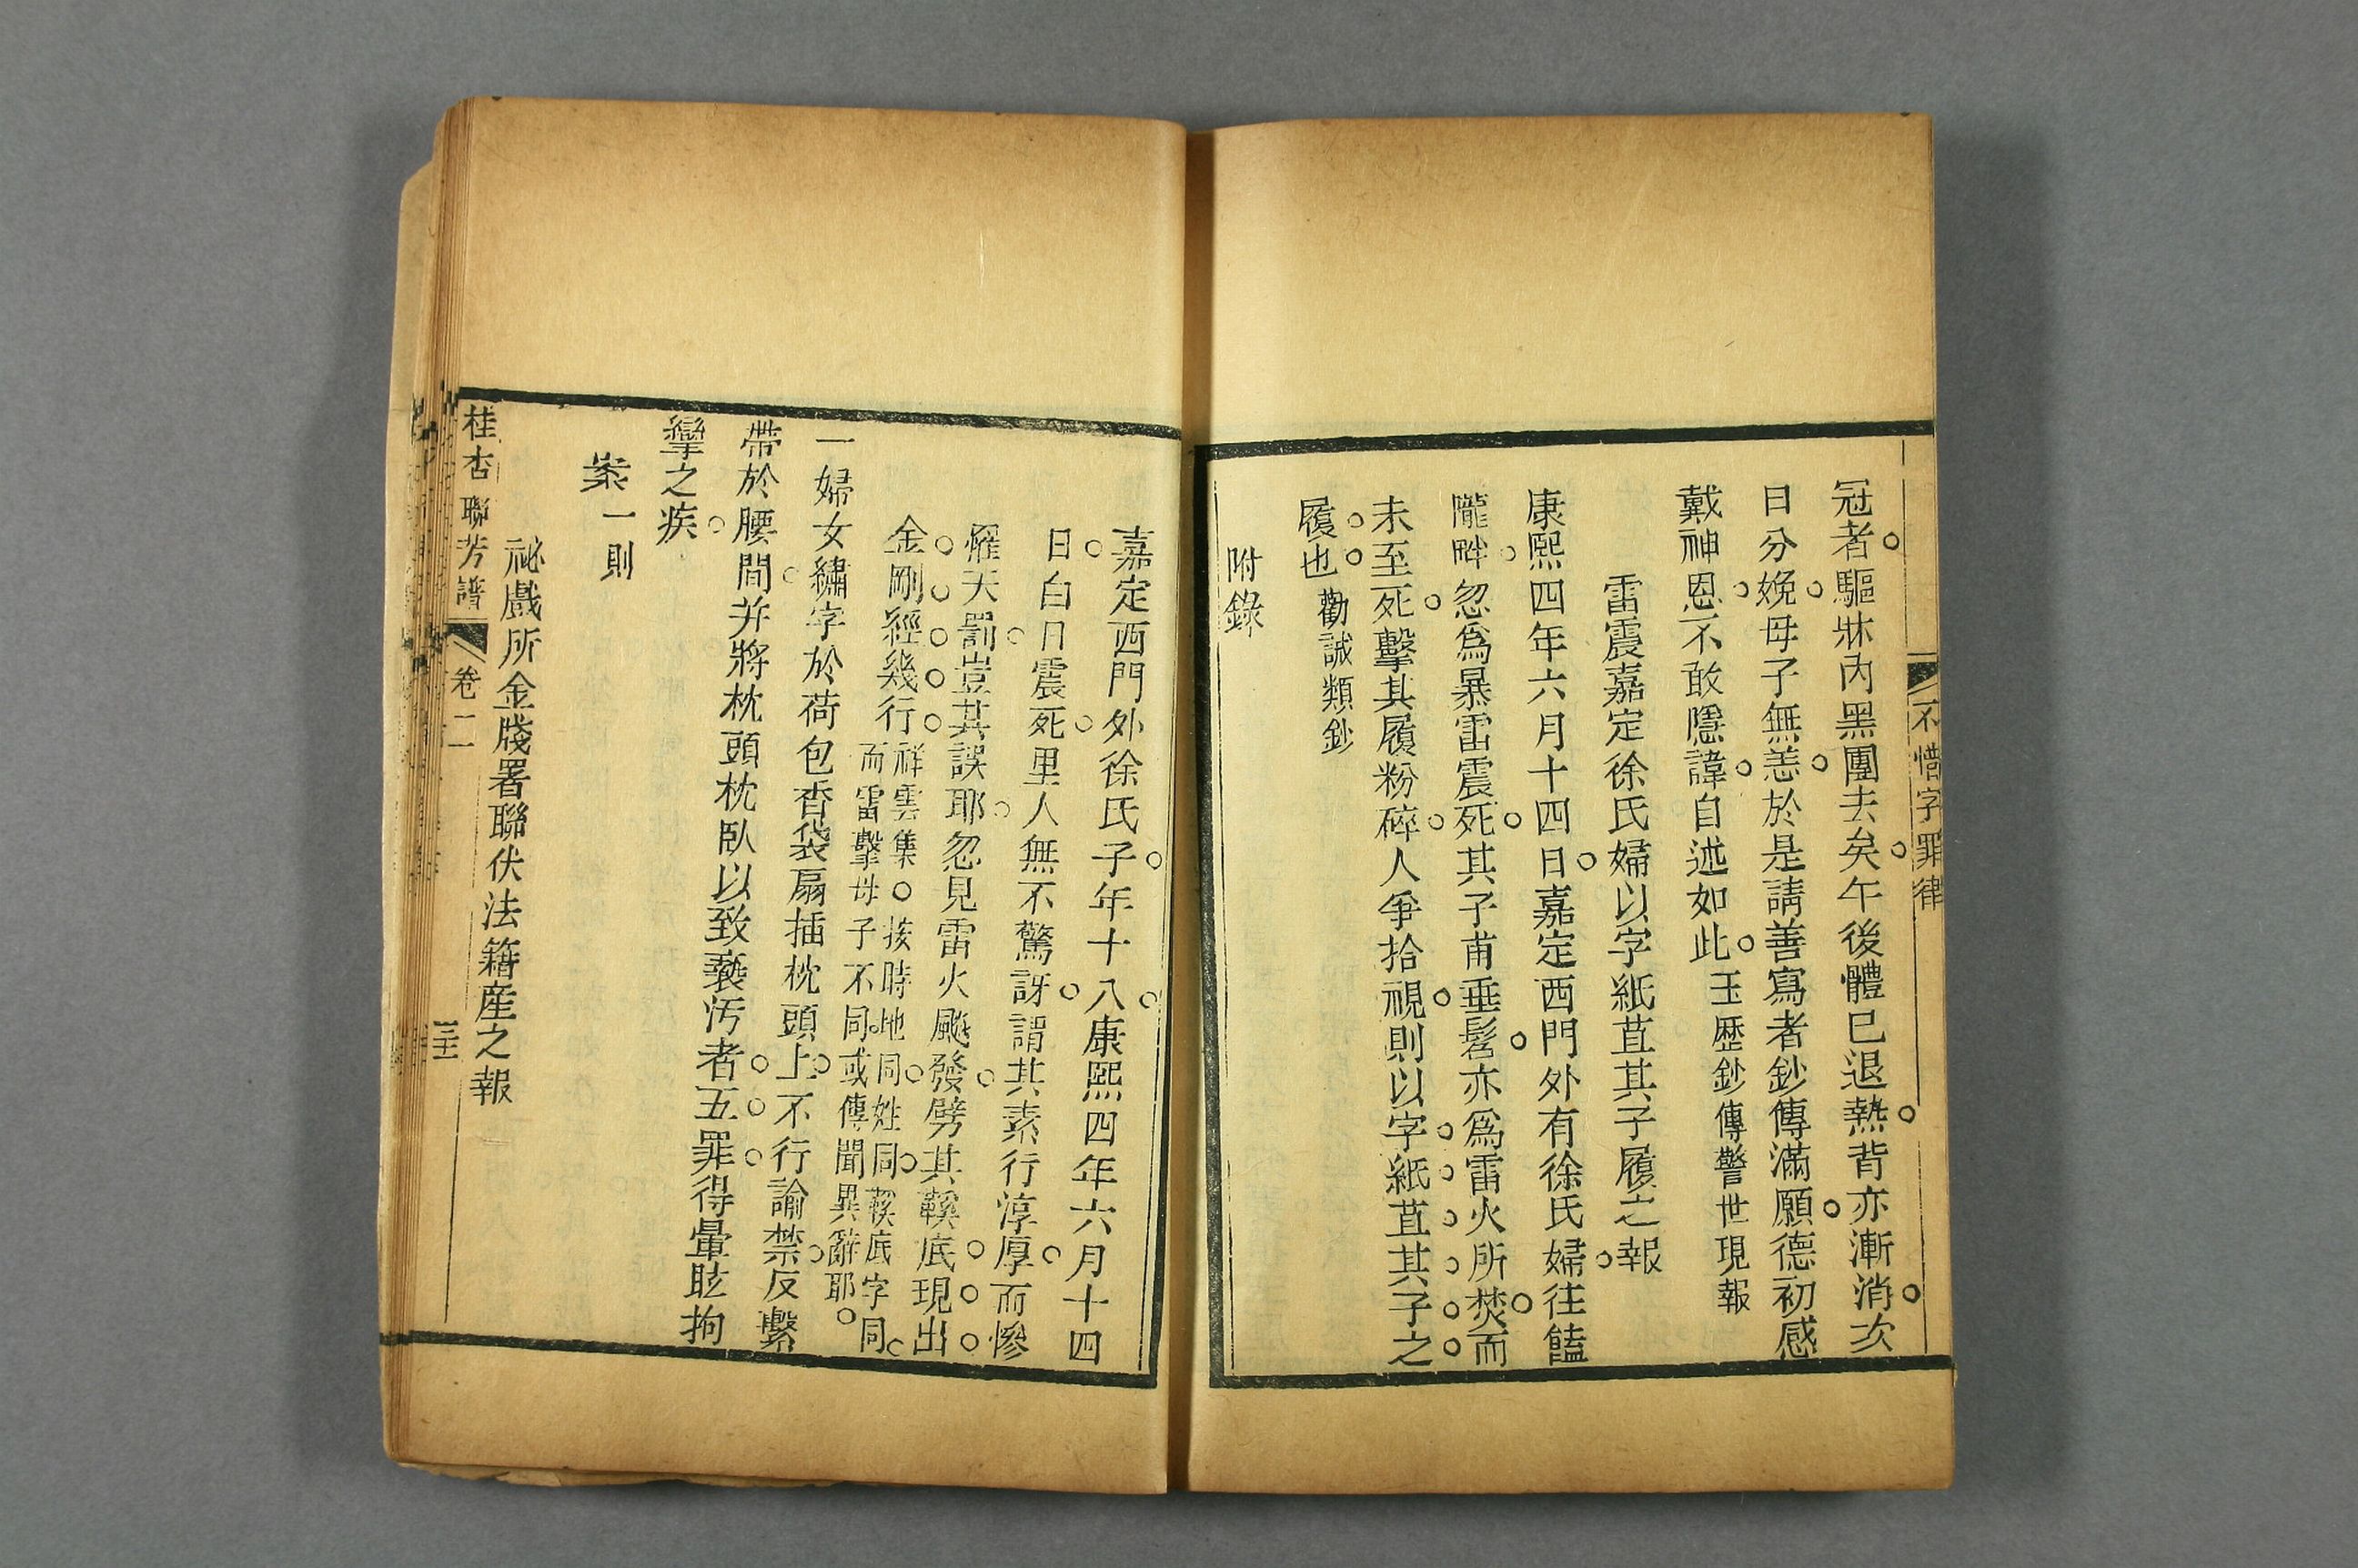 不惜字罪律
冠者驅牀內黑團去矣午後體已退熱背亦漸消次
日分娩母子無恙於是請善寫者鈔傳滿願德初感
戴神恩不敢隱諱自述如此玉歷鈔傳警世現報
雷震嘉定徐氏婦以字紙苴其子履之報
康熙四年六月十四日嘉定西門外有徐氏婦往饁
隴畔忽爲暴雷震死其子甫垂髫亦爲雷火所焚而
未至死擊其履粉碎人爭拾視則以字紙苴其子之
履也勸誡類鈔
附錄
嘉定西門外徐氏子年十八康熙四年六月十四
日白日震死里人無不驚訝謂其素行淳厚而慘
罹天罰豈其誤耶忽見雷火颷發劈其鞵底現出
金剛經幾行祥雲集按時地同姓同鞵底字同
而雷擊母子不同或傳聞異辭耶
一婦女繡字於荷包香袋扇插枕頭上不行諭禁反繫
帶於腰間并將枕頭枕臥以致褻汚者五罪得暈眩拘
攣之疾
案一則
祕戲所金牋署聯伏法籍産之報
桂杏聯芳譜 卷二